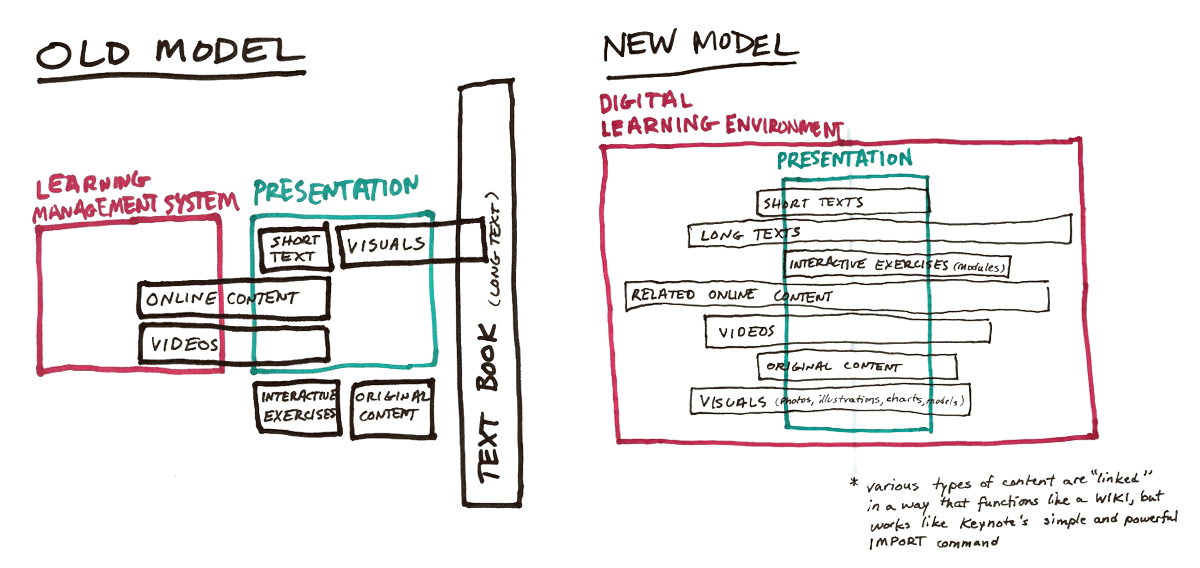 OLD MODEL
LEARNING
MANAGEMENT SYSTEM
PRESENTATION
SHORT
TEXT
VISUALS
ONLINE CONTENT
VIDEOS
INTERACTIVE
EXERCISES
ORIGINAL
CONTENT
TEXT BOOK (LONG TEXT)
NEW MODEL
DIGITAL
LEARNING ENVIRONMENT
PRESENTATION
SHORT TEXTS
LONG TEXTS
INTERACTIVE EXERCISES (modules)
RELATED ONLINE CONTENT
VIDEOS
ORIGINAL CONTENT
VISUALS (photos, illustrations, charts, models)
* various types of content are "linked"
in a way that functions like a WIKI, but
works like Keynote's simple and powerful
IMPORT command